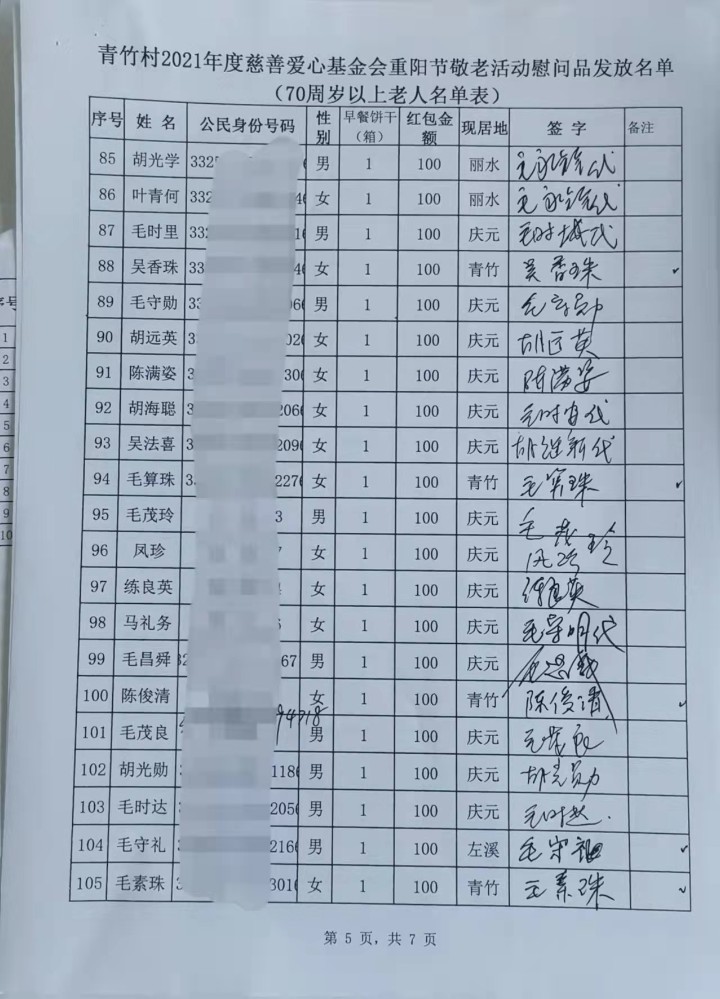 青竹村2021年度慈善爱心基金会重阳节敬老活动慰问品发放名单
（70周岁以上老人名单表）
序号 姓 名 公民身份号码 性别 早餐饼干（箱） 红包金额 现居地 签 字 备注
85 胡光学 男 1 100 丽水
86 叶青何 女 1 100 丽水
87 毛时里 男 1 100 庆元
88 吴香珠 女 1 100 青竹 吴香珠 ✓
89 毛守勋 男 1 100 庆元 毛守勋
90 胡远英 女 1 100 庆元 胡远英
91 陈满姿 女 1 100 庆元 陈满姿
92 胡海聪 女 1 100 庆元
93 吴法喜 女 1 100 庆元 胡继新代
94 毛算珠 女 1 100 青竹 毛算珠 ✓
95 毛茂玲 男 1 100 庆元 毛茂玲
96 凤珍 女 1 100 庆元
97 练良英 女 1 100 庆元 练良英
98 马礼务 女 1 100 庆元
99 毛昌舜 男 1 100 庆元
100 陈俊清 女 1 100 青竹 陈俊清 ✓
101 毛茂良 男 1 100 庆元 毛茂良
102 胡光勋 男 1 100 庆元 胡光勋
103 毛时达 男 1 100 庆元 毛时达
104 毛守礼 男 1 100 左溪 ✓
105 毛素珠 女 1 100 青竹 毛素珠 ✓
第 5 页，共 7 页
序号
1
2
3
4
5
6
7
8
9
10